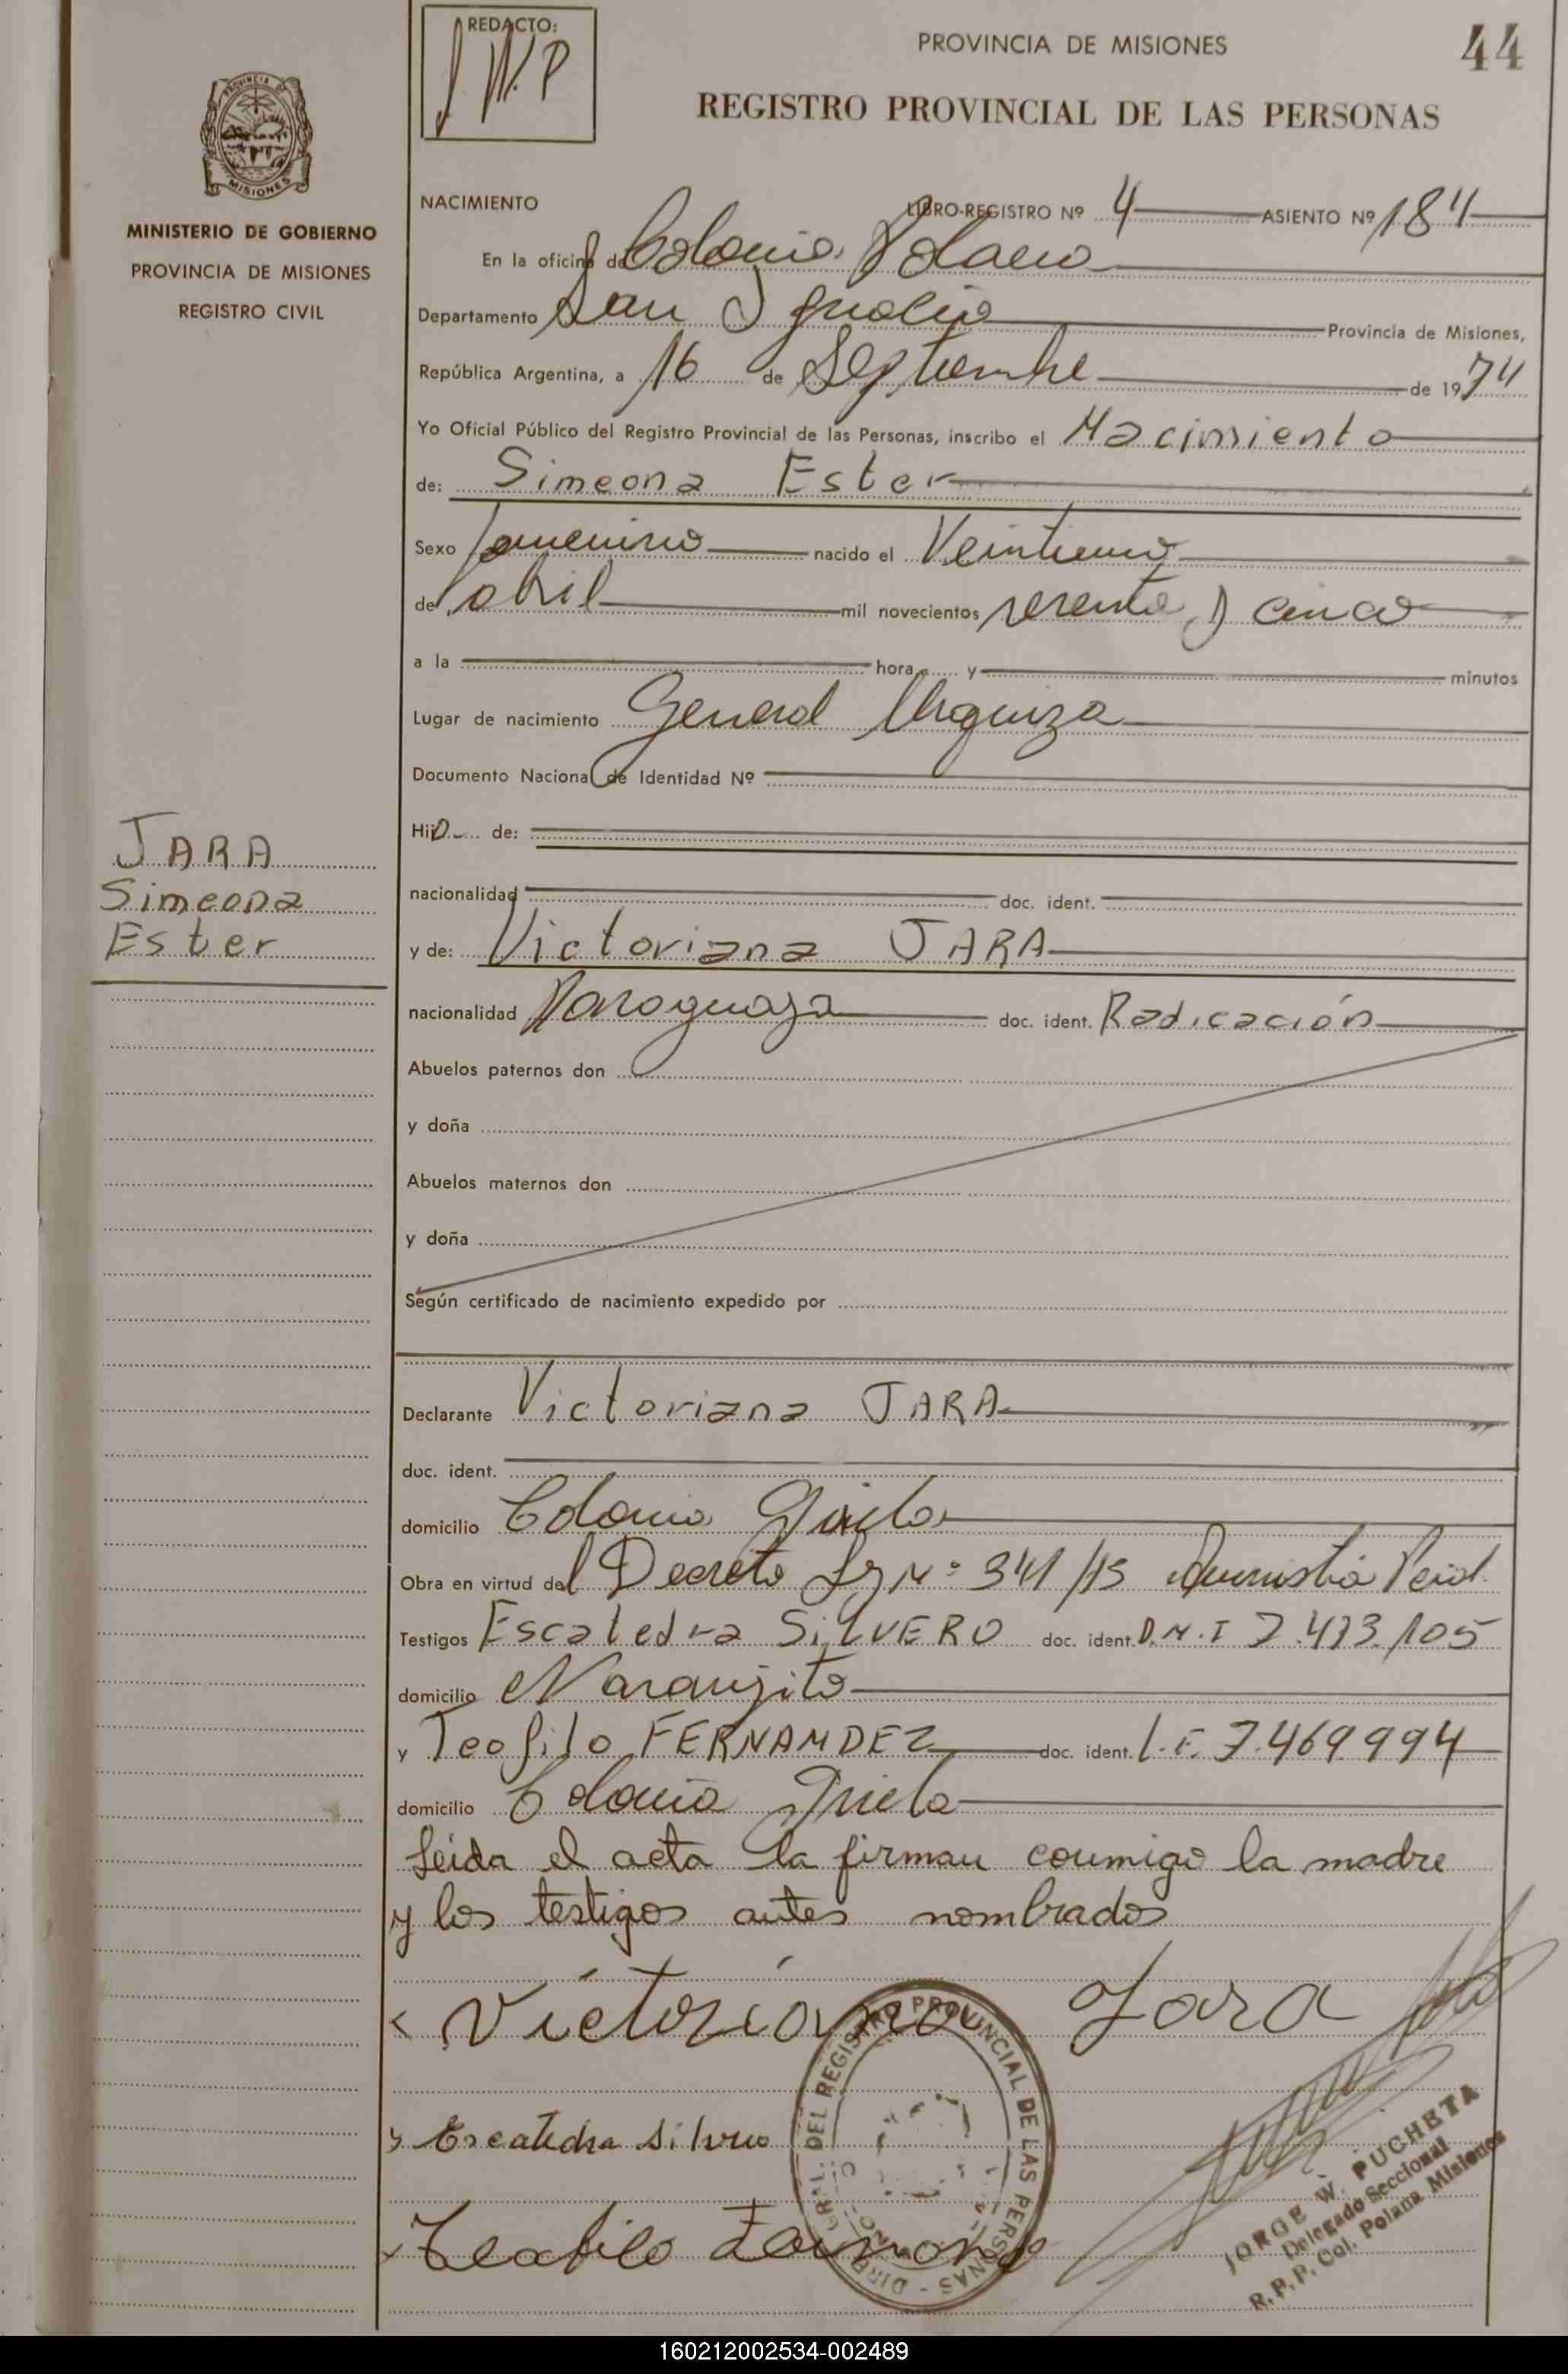 REDACTO:
J W. P
PROVINCIA DE MISIONES
44
REGISTRO PROVINCIAL DE LAS PERSONAS
MISIONES
MINISTERIO DE GOBIERNO
PROVINCIA DE MISIONES
REGISTRO CIVIL
NACIMIENTO LIBRO-REGISTRO Nº 4 ASIENTO Nº 184
En la oficina de Colonia Polana
Departamento San Ignacio Provincia de Misiones,
República Argentina, a 16 de Septiembre de 1974
Yo Oficial Público del Registro Provincial de las Personas, inscribo el Nacimiento
de: Simeona Ester
Sexo femenino nacido el Veintiuno
de abril mil novecientos sesenta y cinco
a la hora y minutos
Lugar de nacimiento General Urquiza
Documento Nacional de Identidad Nº
Hija de:
nacionalidad doc. ident.
JARA
Simeona
Ester
y de: Victoriana JARA
nacionalidad Paraguaya doc. ident. Radicación
Abuelos paternos don
y doña
Abuelos maternos don
y doña
Según certificado de nacimiento expedido por
Declarante Victoriana JARA
doc. ident.
domicilio Colonia
Obra en virtud del Decreto Ley Nº
Testigos Escatedra SiLVERO doc. ident. D.N.I 7.413.105
domicilio Naranjito
y Teofilo FERNANDEZ doc. ident. L.E. 7.469.994
domicilio Colonia
Leida el acta la firman conmigo la madre
y los testigos antes nombrados
Victoriana Jara
Escatedra Silvero
Teofilo
DIREC. GRAL. DEL REGISTRO PROVINCIAL DE LAS PERSONAS
JORGE W. PUCHETA
Delegado Seccional
R.P.P. Col. Polana Misiones
160212002534-002489